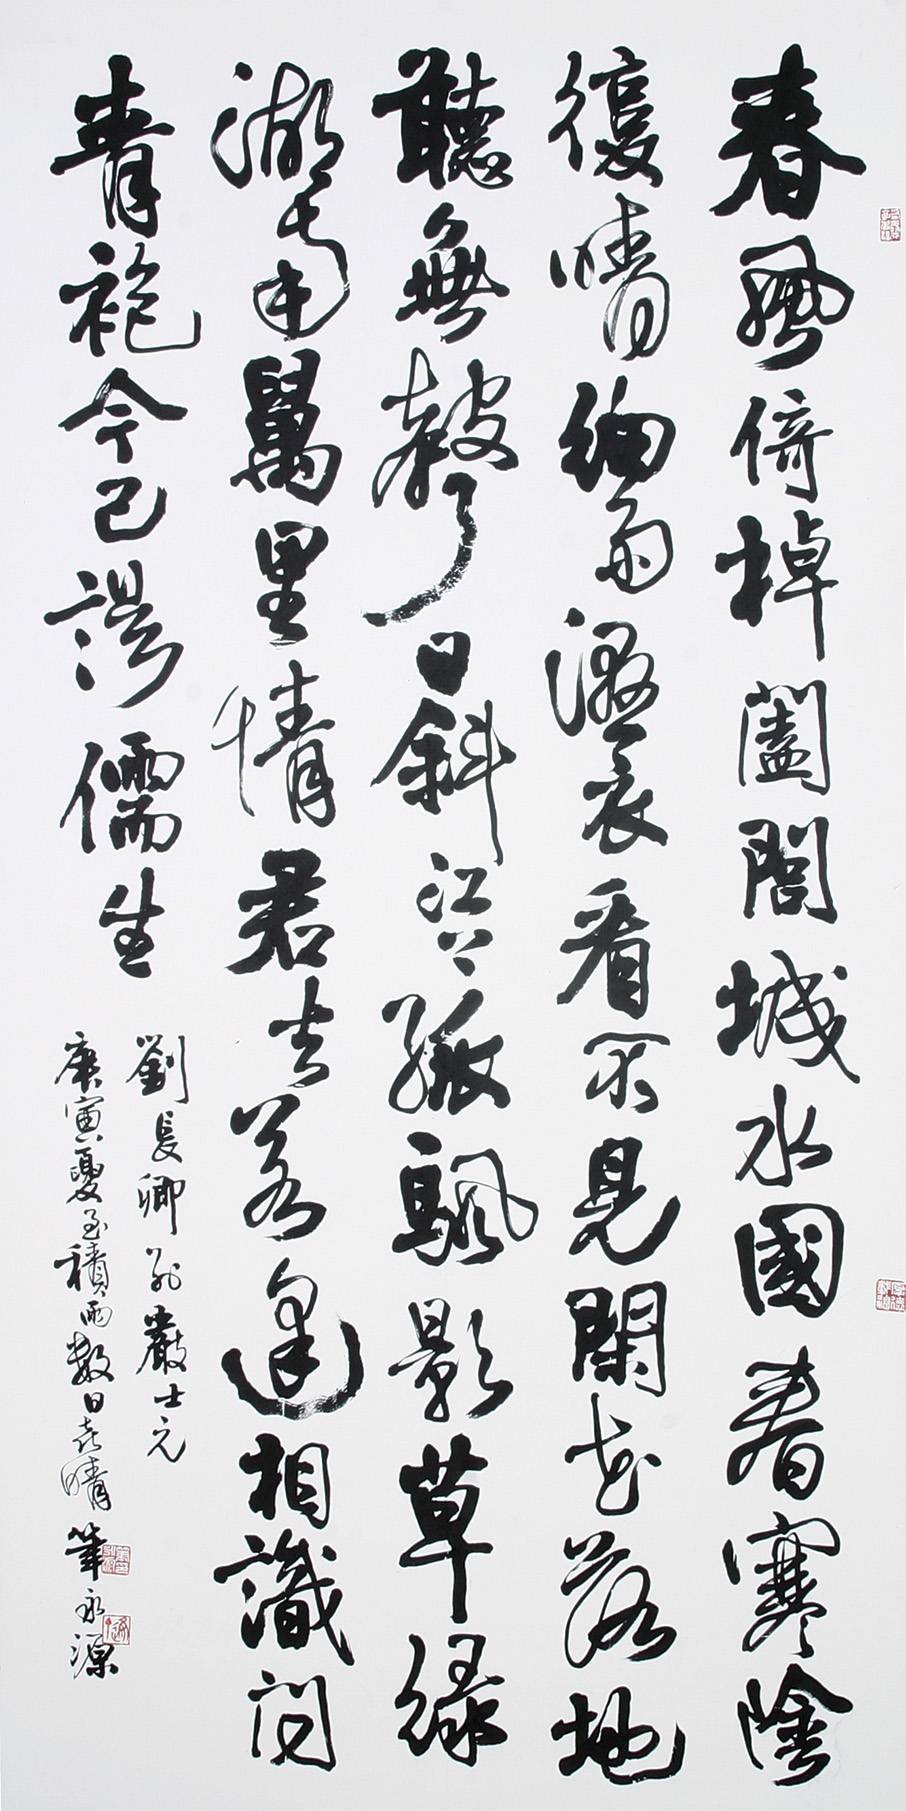 春風倚棹闔閭城水國春寒陰
復晴細雨濕衣看不見閑花落地
聽無聲日斜江上孤颿影草綠
湖南萬里情君去若逢相識問
青袍今已誤儒生
劉長卿 別嚴士元
庚寅夏至積雨數日喜晴 筆永源